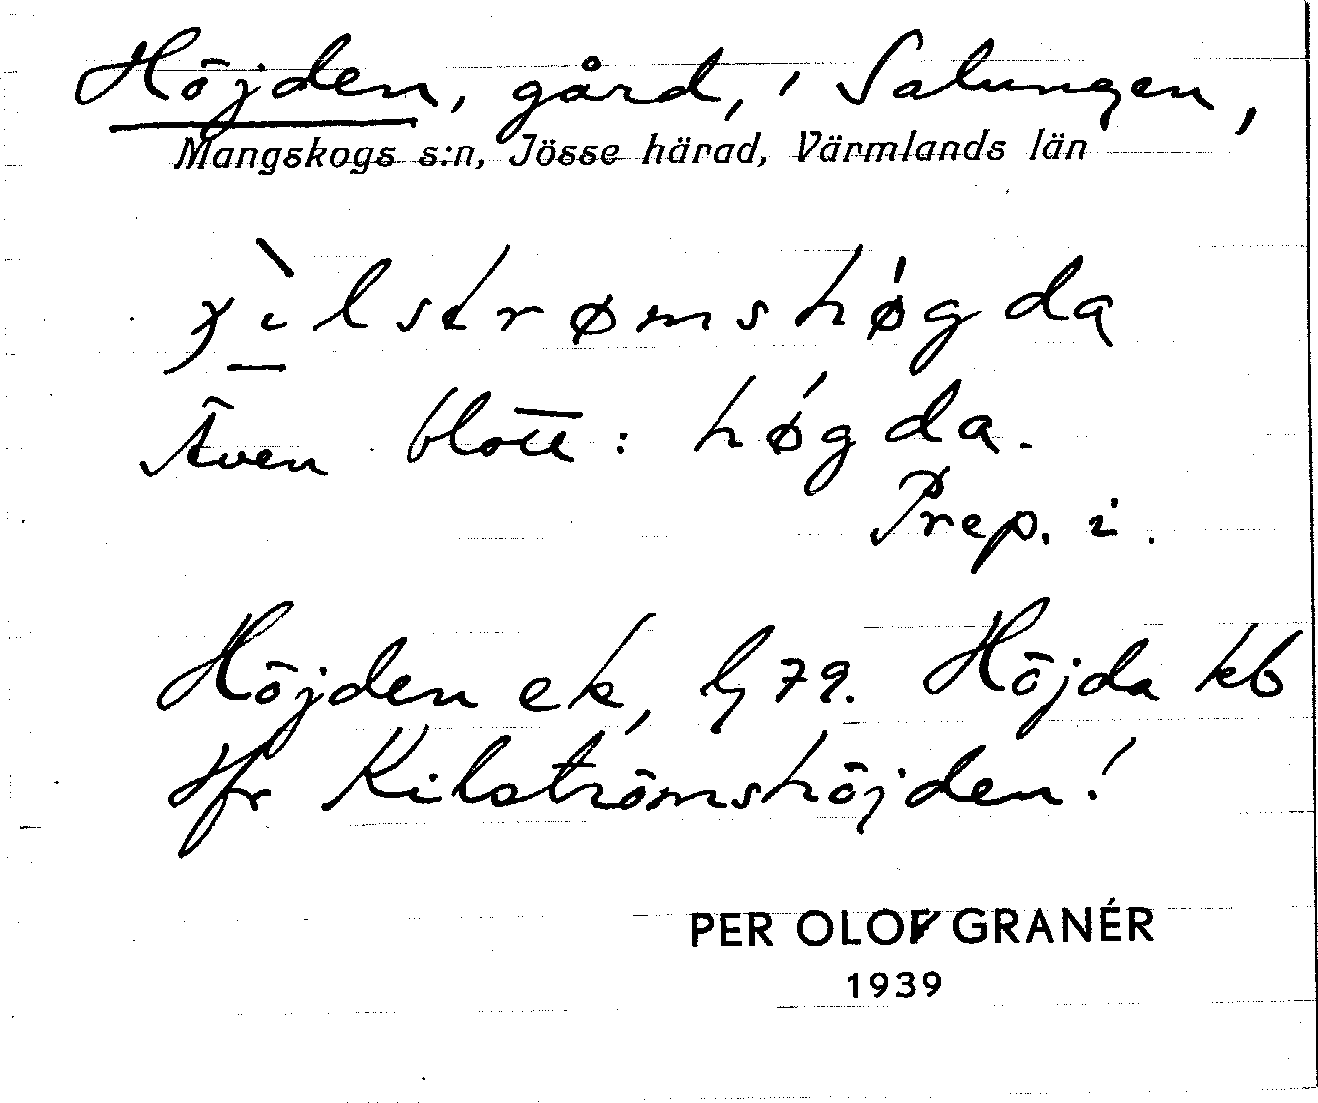 Höjden, gård, i Salungen,
Mangskogs s:n, Jösse härad, Värmlands län
lstrømshøgda
Även blott: høgda.
Prep. i.
Höjden ek, lj 79. Höjda kb
Hfr Kilströmshöjden!
PER OLOF GRANÉR
1939